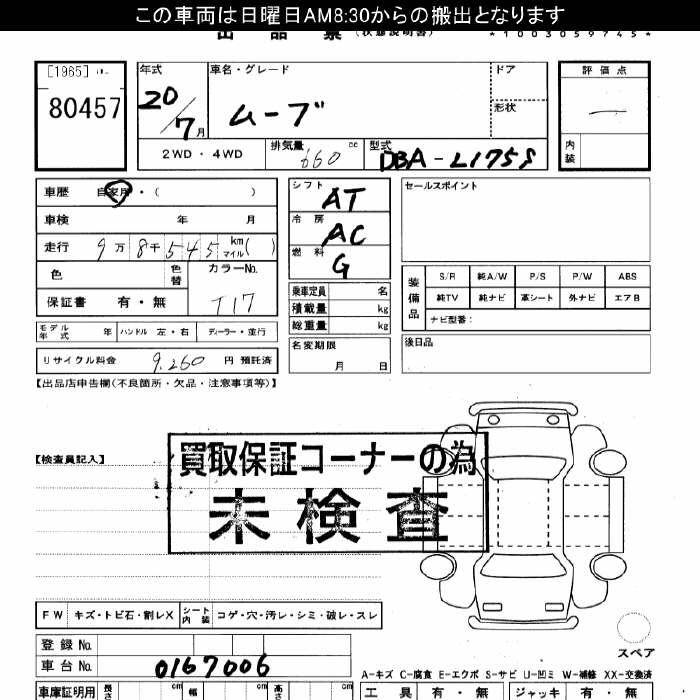 この車両は日曜日AM8:30からの搬出となります
出品票 (状態説明書) *1003059745*
[1965]
80457
年式 車名・グレード ドア 評価点
20/7月 ムーブ 形状 —
2WD・4WD 排気量 660 cc 型式 DBA-L175S 内装
車歴 自家用・( )
車検 年 月
走行 9万8千545 km マイル( )
色 色替 カラーNo. T17
保証書 有・無
モデル年式 年 ハンドル 左・右 ディーラー・並行
リサイクル料金 9,260 円 預託済
シフト AT
冷房 AC
燃料 G
乗車定員 名
積載量 kg
総重量 kg
名変期限 月 日
セールスポイント
装備品 S/R 純A/W P/S P/W ABS
純TV 純ナビ 革シート 外ナビ エアB
ナビ型番:
後日品
【出品店申告欄(不良箇所・欠品・注意事項等)】
【検査員記入】
買取保証コーナーの為
未検査
FW キズ・トビ石・割レX シート内装 コゲ・穴・汚レ・シミ・破レ・スレ
登録No.
車台No. 0167006
スペア
A-キズ C-腐食 E-エクボ S-サビ U-凹ミ W-補修 XX-交換済
車庫証明用 長さ cm 幅 cm 高さ cm 工具 有・無 ジャッキ 有・無